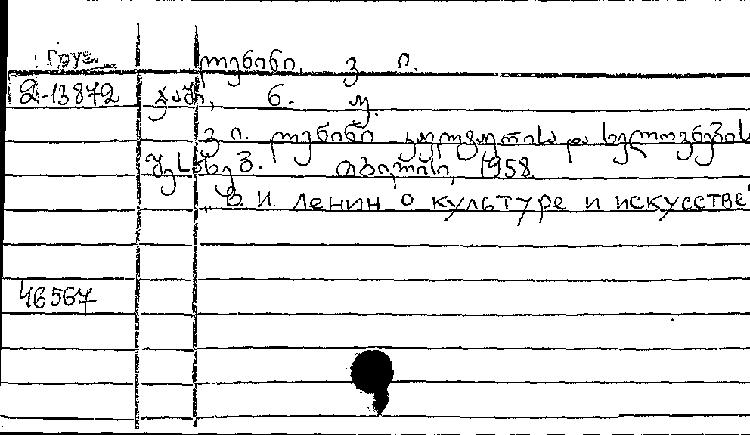 Груз. ლენინი, ვ. ი.
2-13872 ჯაშ, ნ. უ.
ვ. ი. ლენინი კულტურისა და ხელოვნების
შესახებ. თბილისი, 1958
„В. И. Ленин о культуре и искусстве
46567